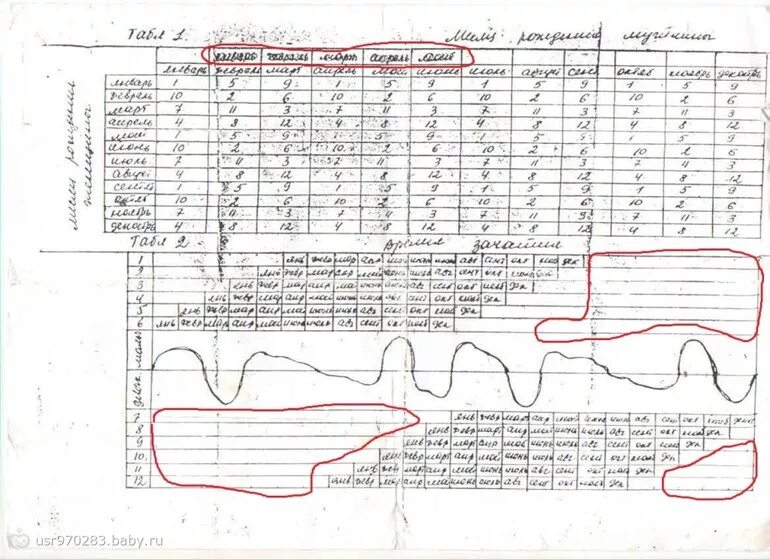 Табл 1 Месяц рождения мужчины
январь февраль март апрель май
январь февраль март апрель май июнь июль август сент октяб ноябрь декабрь
Месяц рождения женщины
январь 1 5 9 1 5 9 1 5 9 1 5 9
февраль 10 2 6 10 2 6 10 2 6 10 2 6
март 7 11 3 7 11 3 7 11 3 7 11 3
апрель 4 8 12 4 8 12 4 8 12 4 8 12
май 1 5 9 1 5 9 5 9 1 5 9
июнь 10 2 6 10 2 6 10 2 6 10 2 6
июль 7 11 3 7 11 3 7 11 3 7 11 3
август 4 8 12 4 8 12 4 8 12 4 8 12
сентяб 1 5 9 1 5 9 1 5 9 1 5 9
октяб 10 2 6 10 2 6 10 2 6 10 2 6
ноябрь 7 11 3 7 11 3 7 11 3 7 11 3
декабрь 4 8 12 4 8 12 4 8 12 4 8 12
Табл 2 Время зачатия
1 янв февр мар апр май июнь июль авг сент окт нояб дек
2 янв февр мар апр май июнь июль авг сент окт нояб дек
3 янв февр мар апр май июнь июль авг сент окт нояб дек
4 янв февр мар апр май июнь июль авг сент окт нояб дек
5 янв февр мар апр май июнь июль авг сент окт нояб дек
6 янв февр мар апр май июнь июль авг сент окт нояб дек
девоч. мальч
7 янв февр март апр май июнь июль авг сент окт нояб дек
8 янв февр март апр май июнь июль авг сент окт нояб дек
9 янв февр март апр май июнь июль авг сент окт нояб дек
10 янв февр март апр май июнь июль авг сент окт нояб дек
11 янв февр март апр май июнь июль авг сент окт нояб дек
12 янв февр март апр май июнь июль авг сент окт нояб дек
usr970283.baby.ru